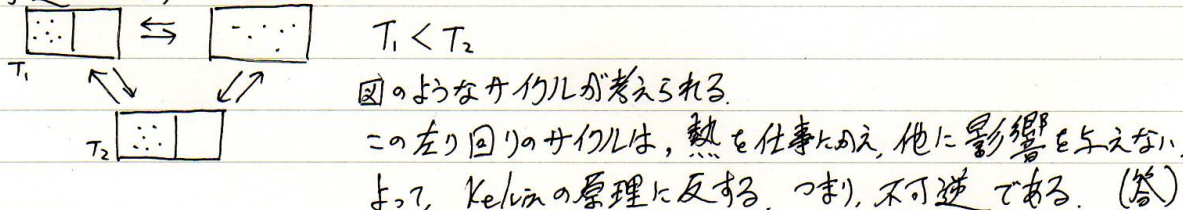 T₁ < T₂
T₁
図のようなサイクルが考えられる.
T₂
この左り回りのサイクルは, 熱を仕事にかえ, 他に影響を与えない.
よって, Kelvinの原理に反する. つまり, 不可逆である. (答)